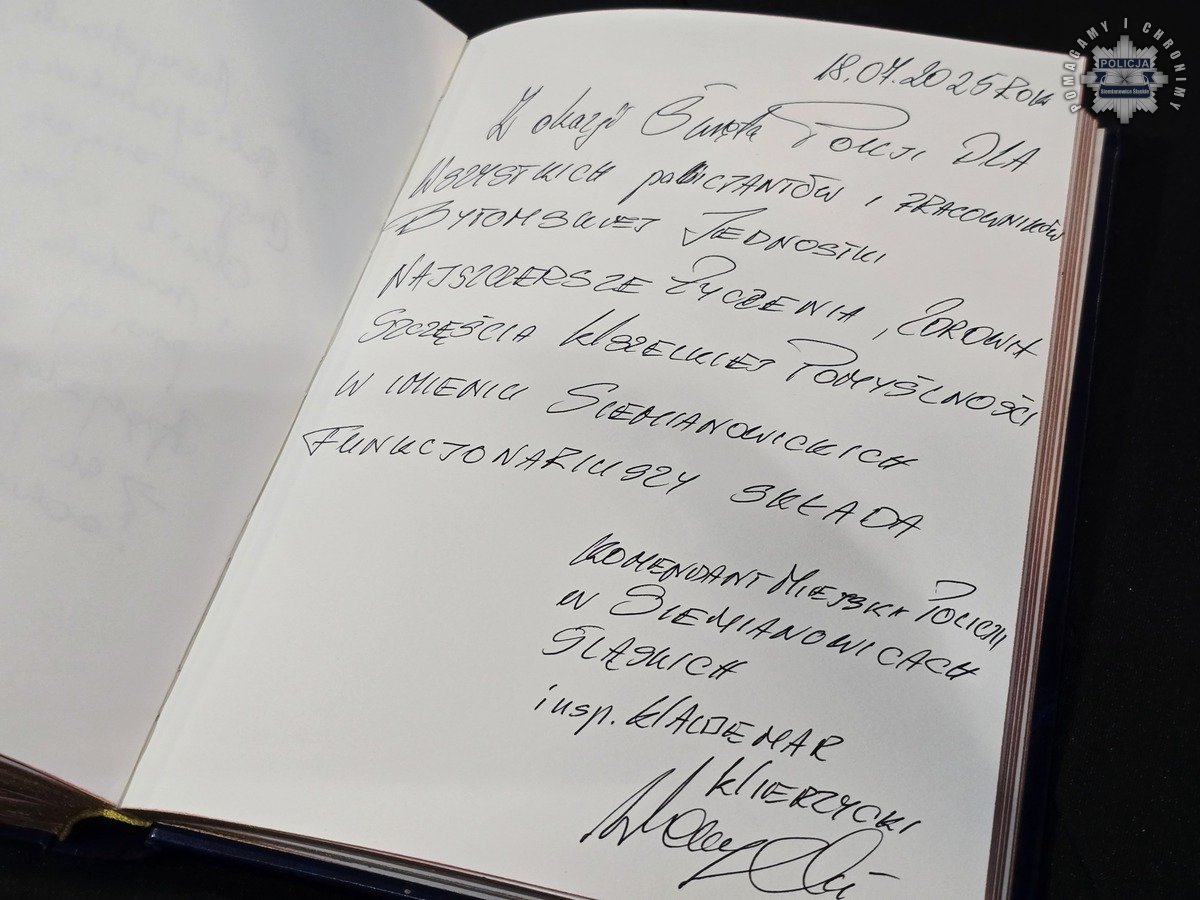 POMAGAMY I CHRONIMY
POLICJA
Siemianowice Śląskie
18.07.2025 ROK
Z okazji Święta POLICJI DLA
WSZYSTKICH policjantów i PRACOWNIKÓW
BYTOMSKIEJ JEDNOSTKI
NAJSZCZERSZE ŻYCZENIA, ZDROWIA
SZCZĘŚCIA WSZELKIEJ POMYŚLNOŚCI
W IMIENIU SIEMIANOWICKICH
FUNKCJONARIUSZY SKŁADA
KOMENDANT MIEJSKI POLICJI
W SIEMIANOWICACH
ŚLĄSKICH
insp. WALDEMAR
WIERZYCKI